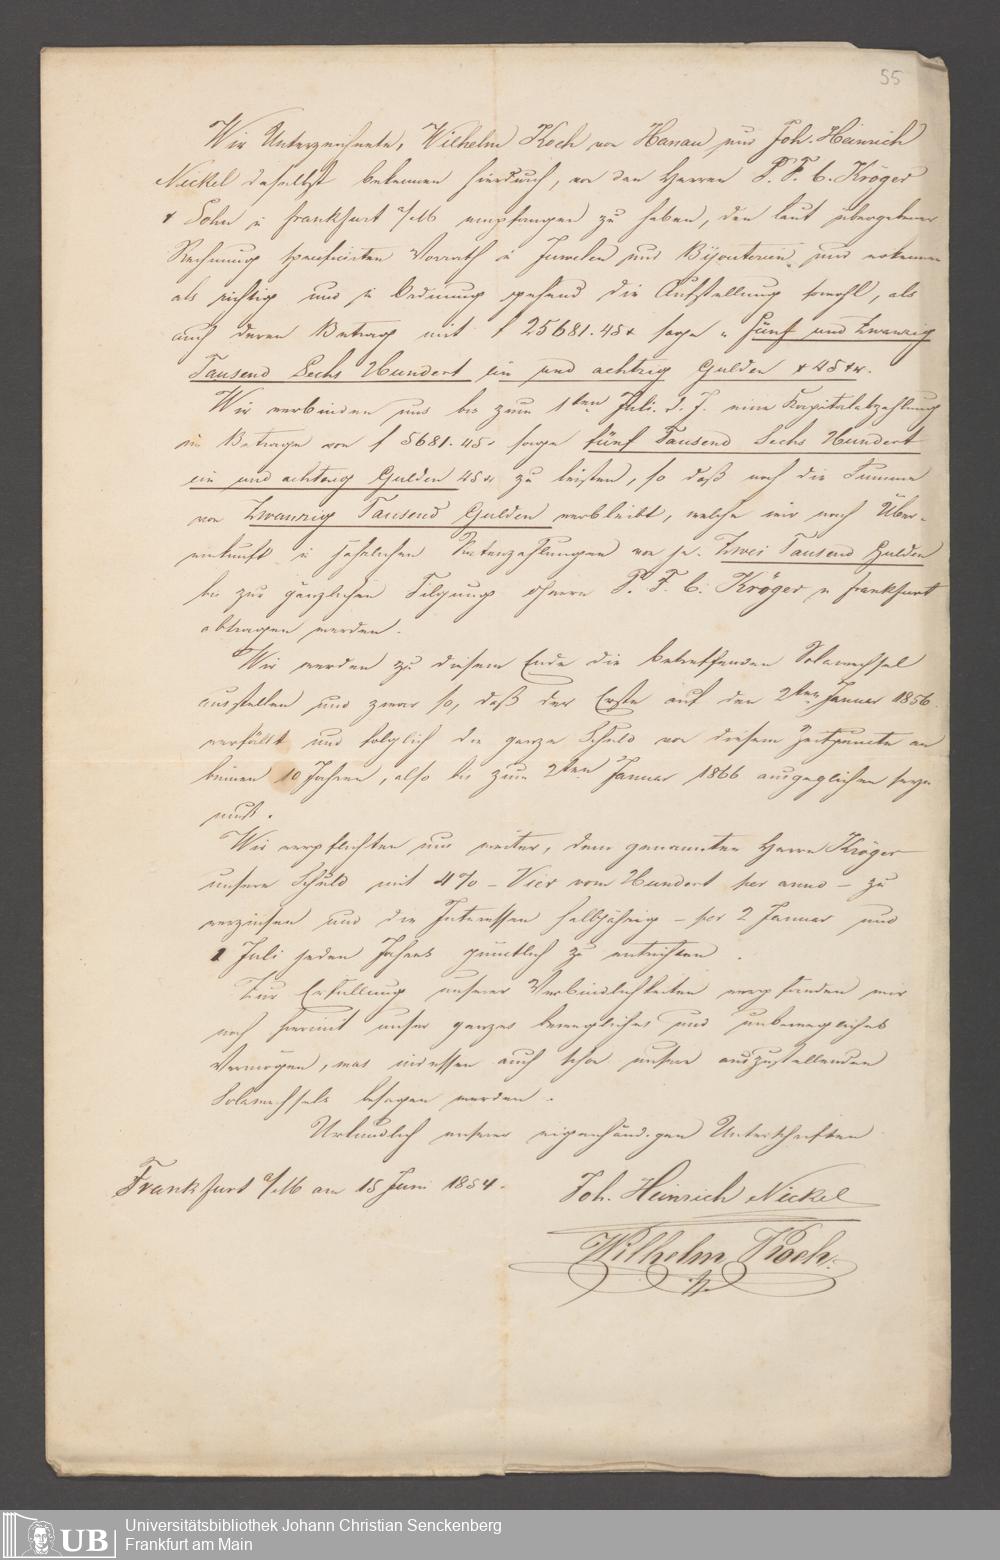 55
Wir Unterzeichnete, Wilhelm Koch von Hanau und Joh. Heinrich
Nickel daselbst bekennen hierdurch, von den Herren P. F. C. Kröger
& Sohn in Frankfurt a/M empfangen zu haben, den laut übergebener
Rechnung specificirten Vorrath in Juwelen und Bijouterien, und erkennen
als richtig und in Ordnung gehend die Aufstellung sowohl, als
auch deren Betrag mit f 25681.45x sage " Fünf und Zwanzig
Tausend Sechs Hundert ein und achtzig Gulden & 45 xr.
Wir verbinden uns bis zum 1ten Juli d. J. eine Kapitalabzahlung
im Betrage von f 5681.45. sage fünf Tausend Sechs Hundert
ein und achtzig Gulden 45 xr zu leisten, so daß noch die Summe
von Zwanzig Tausend Gulden verbleibt, welche wir nach Über-
einkunft in jährlichen Ratenzahlungen von je. Zwei Tausend Gulden
bis zur gänzlichen Tilgung Herrn P. F. C. Kröger in Frankfurt
abtragen werden.
Wir werden zu diesem Ende die betreffenden Solawechsel
ausstellen und zwar so, daß der Erste auf den 2ten Januar 1856
verfällt und folglich die ganze Schuld von diesem Zeitpuncte an
binnen 10 Jahren, also bis zum 2ten Januar 1866 ausgeglichen seyn
muß.
Wir verpflichten uns weiter, dem genannten Herrn Kröger
unsere Schuld mit 4% – Vier vom Hundert per anno – zu
verzinsen und die Interessen halbjährig – per 2 Januar und
1 Juli jeden Jahres pünktlich zu entrichten.
Zur Erfüllung unserer Verbindlichkeiten verpfänden wir
noch hiermit unser ganzes bewegliches und unbewegliches
Vermögen, was indessen auch schon unsere auszustellenden
Solawechsels besagen werden.
Urkundlich unserer eigenhändigen Unterschriften
Frankfurt a/M am 15 Juni 1854.
Joh. Heinrich Nickel
Wilhelm Koch.
UB
Universitätsbibliothek Johann Christian Senckenberg
Frankfurt am Main